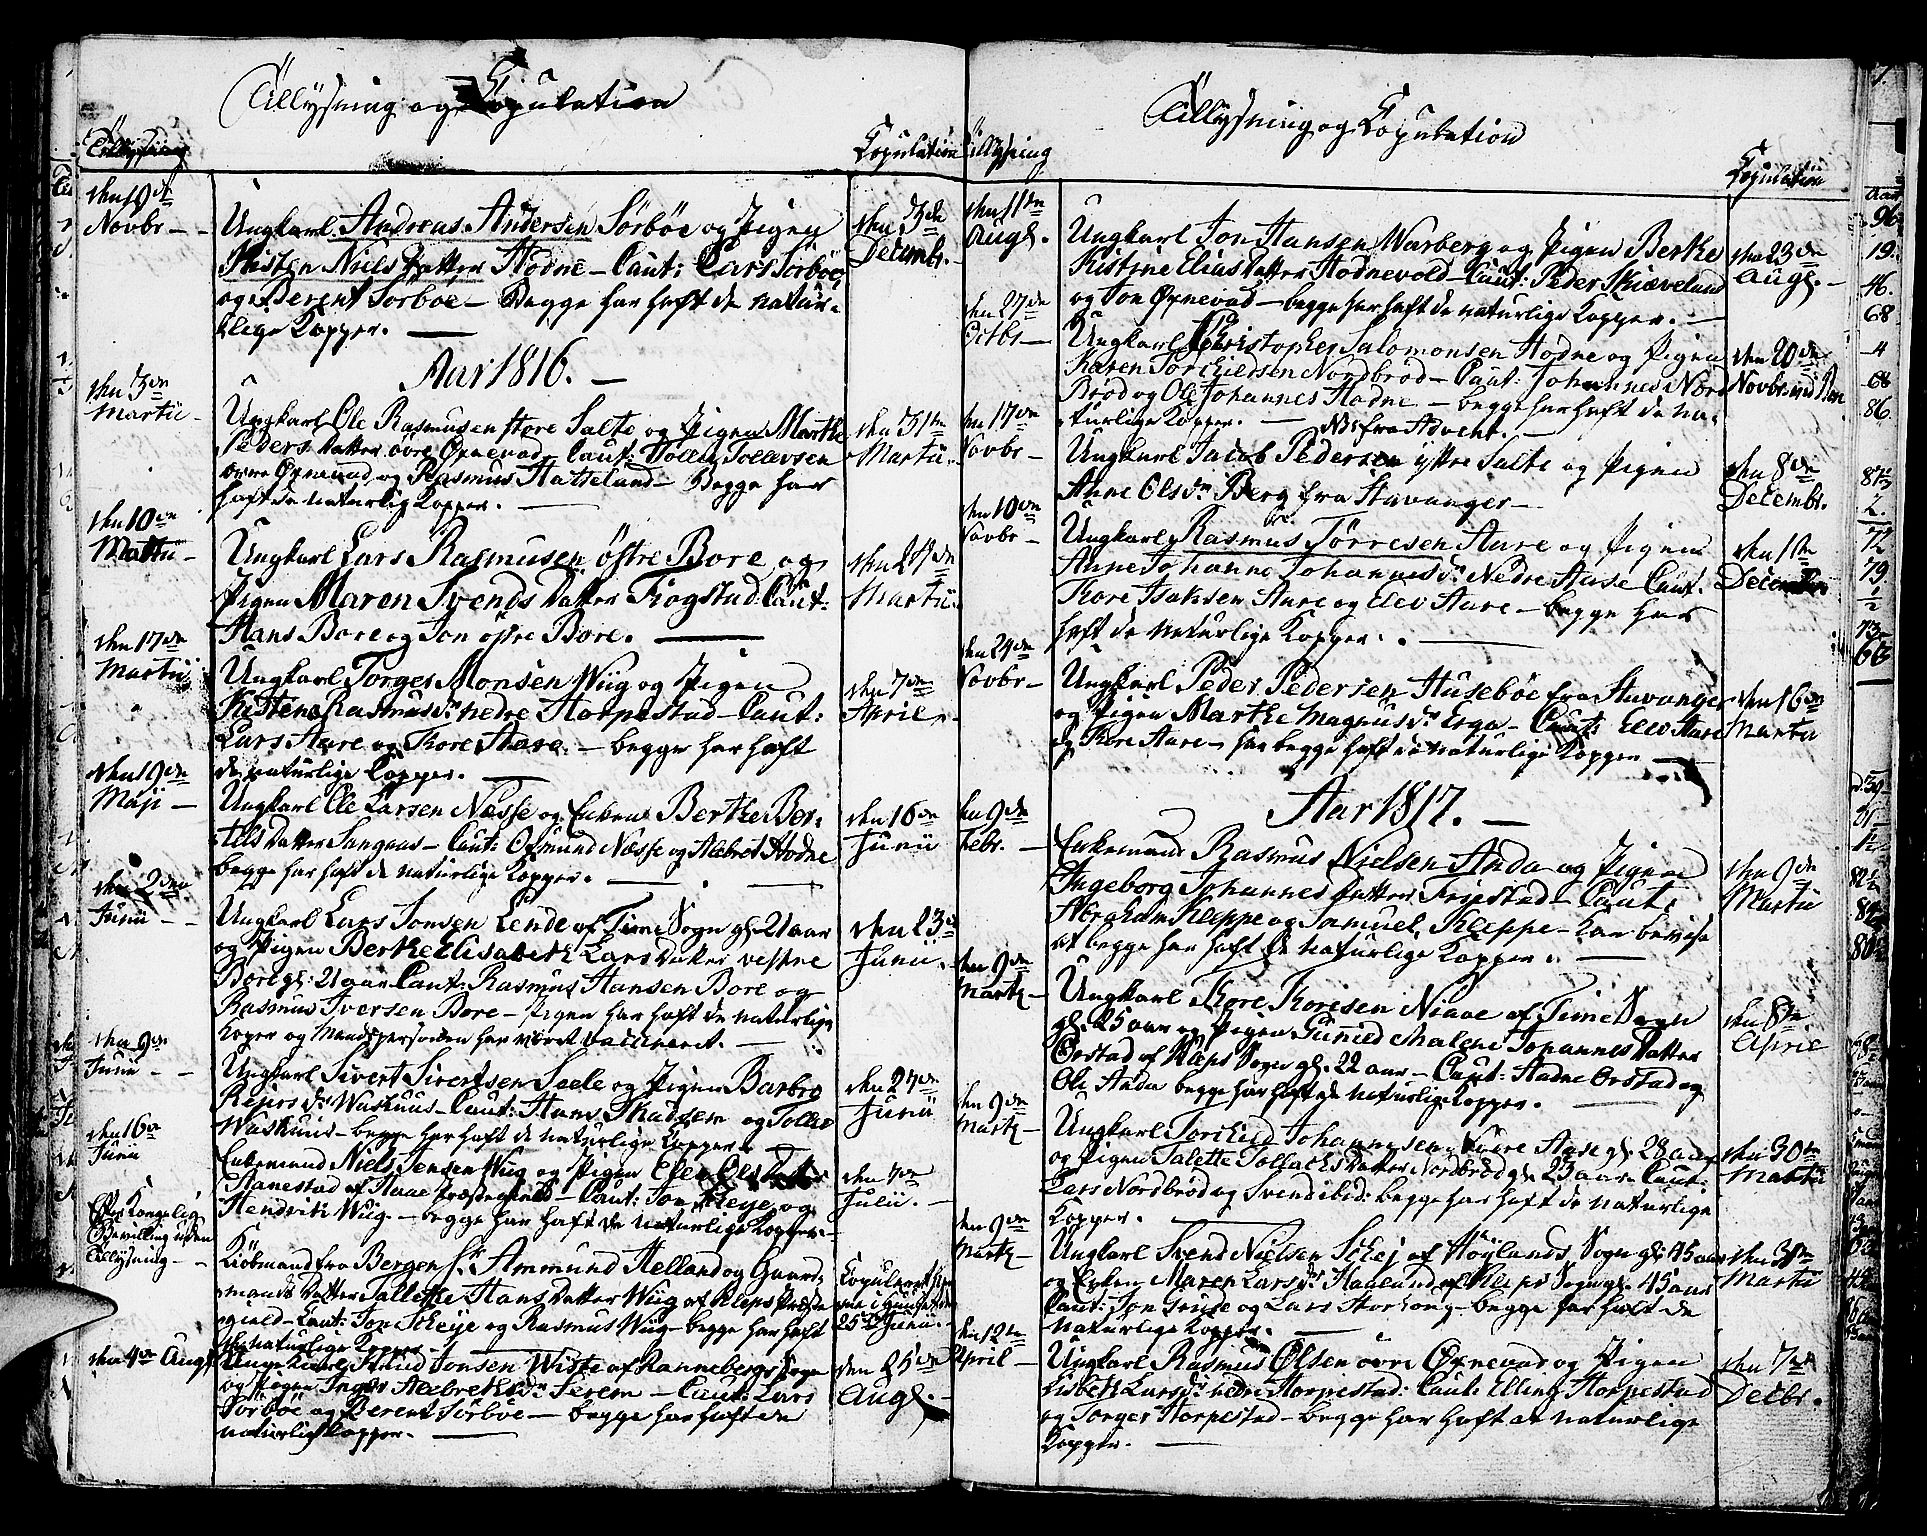 Tillysning og Copulation
Tillysning
Copulation
den 19de
Novbr -
Ungkarl Andreas Andersen Sörböe og Pigen
Kisten Niels Datter Hodne - Caut: Lars Sörböe
og Berent Sörböe - Begge har haft de natur-
lige Kopper. -
den 3die
Decembr.
Aar 1816. -
den 3die
Martii -
Ungkarl Ole Rasmusen store Salte og Pigen Marthe
Peders Datter övre Öxnevad - Caut: Tollev Tollevsen
övre Öxnevad og Rasmus Hatteland - Begge har
haft de naturlig Kopper. -
den 31te
Martii.
den 10de
Martii -
Ungkarl Lars Rasmusen östre Bore og
Pigen Maren Svends Datter Frögstad: Caut:
Hans Bore og Jon östre Bore. -
den 24de
Martii.
den 17de
Martii
Ungkarl Torger Monsen Wiig og Pigen
Kistene Rasmusdr nedre Horpestad - Caut:
Lars Aare og Tore Aare. - begge har haft
de naturlige Kopper. -
den 7de
April.
den 19de
Maji -
Ungkarl Ole Larsen Næsse og Enken Berthe Ber-
tels Datter Sangaas - Caut: Osmund Næsse og Albret Hodne
begge har haft de naturlige Kopper. -
den 16de
Junii
den 2den
Junii - -
Ungkarl Lars Jonsen Lende af Time Sogn gl: 21 aar
og Pigen Berthe Elisabeth Lars Datter vestre
Bore gl: 21 aar Caut: Rasmus Hansen Bore og
Rasmus Iversen Bore - Pigen har haft de naturlige
Koper og Mandspersonen har været vaccineret. -
den 23de
Junii.
den 9de
Junii - -
Ungkarl Sivert Sivertsen Seele og Pigen Barbro
Rejers dr Waskuus - Caut: Hans Skadsem og Tollev
Waskuus - begge har haft de naturlige Kopper. -
den 24de
Junii
den 16de
Junii
Enkemand Niels Jensen Wiig og Pigen Eli Ols Datter
Hanestad af Haae Præstegield - Caut: Jon Scheje og
Hendrik Wiig. - begge har haft de naturlige Kopper. -
den 7de
Julii. -
Per Kongelig
Bevilling uden
Tillysning - -
Kiöbmand fra Bergen Hr Ammund Helland og Gaard-
mands Datter Tallette Hans Datter Wiig af Kleps Præste
gield - Caut: Jon Scheje og Rasmus Wiig - begge har haft
de naturlige Kopper -
Copuleret hjem-
me i Huuset den
25de Junii.
den 4de Augs
Unge Karl Knud Jonsen Wiste af Rannebergs Sogn
og Pigen Inger Albrets dr Serem - Caut: Lars
Sörböe og Berent Sörböe - begge har haft de
naturlig Kopper. -
den 25de
Augs. -
Tillysning og Copulation
Tillysning
Copulation
den 11te
Augs.
Ungkarl Jon Hansen Warberg og Pigen Berthe
Kistine Elias Datter Hodnevold - Caut: Peder Skiæveland
og Jon Öxnevad - begge har haft de naturlige Kopper. -
den 23de
Augs. -
den 27de
Octbr -
Ungkarl Christopher Salomonsen Hodne og Pigen
Karen Torkieldsen Nordbröd - Caut: Johannes Nord
Bröd og Ole Johannes Hodne - begge har haft de na-
turlige Kopper. -
den 20de
Novbr
den 17de
Novbr -
Ungkarl Jacob Pedersen ystre Salte og Pigen
Anne Olsdr Berg fra Stavanger -
den 8de
Decembr.
den 10de
Novbr -
Ungkarl Rasmus Törresen Aare og Pigen
Anne Johanne Johannesdr Nedre Aase Caut:
Tore Isaksen Aare og Elev Aare - begge har
haft de naturlige Kopper. -
den 1te
Decembr.
den 24de
Novbr -
Ungkarl Peder Pedersen Huseböe fra Stavanger
og Pigen Marthe Magnusdr Erga - Caut: Elev Aare
og Tore Aare - har begge haft de naturlige Kopper -
den 16de
Martii
Aar 1817. -
den 9de
Febr. -
Enkemand Rasmus Nielsen Anda og Pigen
Ingeborg Johannes Datter Friestad - Caut:
Abraham Kleppe og Samuel Kleppe - kan bevise
at begge har haft de naturlige Kopper. -
den 9de
Martii
den 9de
Marti -
Ungkarl Tore Toresen Niaae af Time Sogn
gl: 25 aar og Pigen Gunild Malene Johannes Datter
Orstad af Kleps Sogn gl: 22 aar - Caut: Aadne Orstad og
Ole Anda begge har haft de naturlige Kopper. -
den 8de
April
den 9de
Marti -
Ungkarl Torkield Johannesen Aase gl: 28 aar
og Pigen Talette Tollachs Datter Nordbröd gl: 23 aar - Caut:
Lars Nordbröd og Svend ibid: begge har haft de naturlige
Kopper. -
den 30te
Martii
den 9de
Marti -
Ungkarl Svend Nielsen Schej af Höylands Sogn gl: 45 aar
og Enken Maren Larsdr Haaland af Kleps Sogn gl: 45 aar
Caut: Jon Gruse og Lars Storhoug - begge har haft de
naturlige Kopper. -
den 31te
Martii
den 12te
April -
Ungkarl Rasmus Olsen övre Öxnevad og Pigen
Lisbeth Larsdr nedre Horpestad: Caut: Elling Horpestad
og Torger Horpestad - begge har haft de naturlige
Kopper. -
den 7de
Decbr.